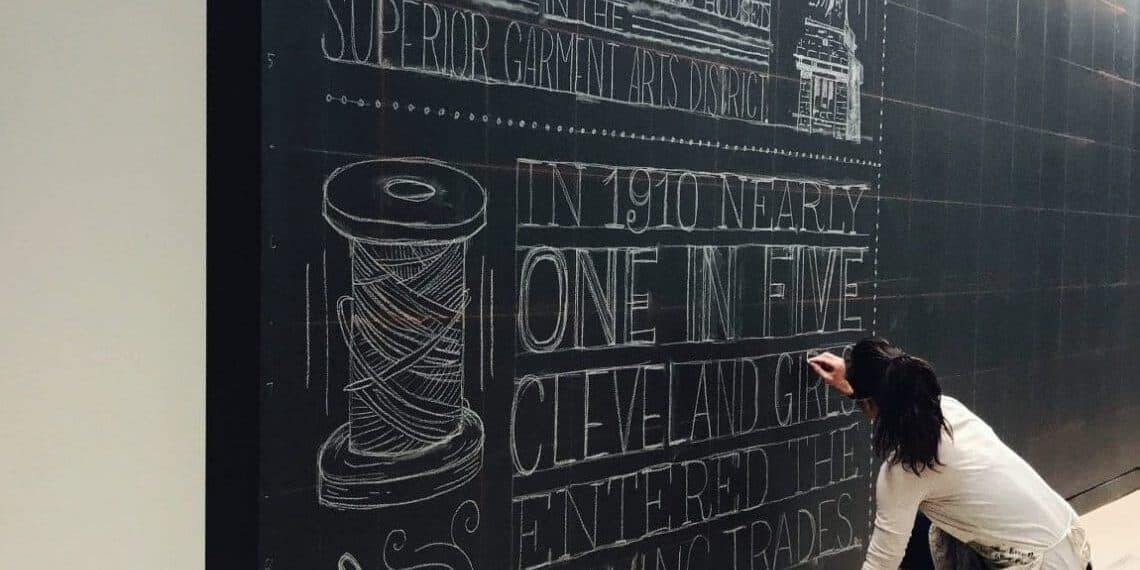 HOUSED
IN THE
SUPERIOR GARMENT ARTS DISTRICT
IN 1910 NEARLY
ONE IN FIVE
CLEVELAND GIRLS
ENTERED THE
TRADES.
5
7